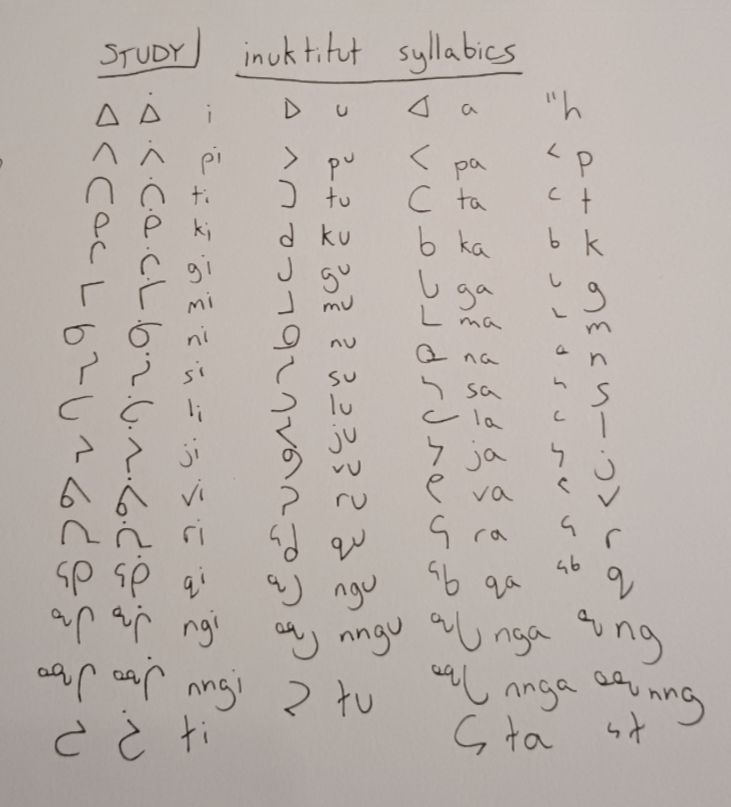 STUDY inuktitut syllabics
ᐃ ᐄ i ᐅ u ᐊ a " h
ᐱ ᐲ pi ᐳ pu ᐸ pa ᑉ p
ᑎ ᑏ ti ᑐ tu ᑕ ta ᑦ t
ᑭ ᑮ ki ᑯ ku ᑲ ka ᒃ k
ᒋ ᒌ gi ᒍ gu ᒐ ga ᒡ g
ᒥ ᒦ mi ᒧ mu ᒪ ma ᒻ m
ᓂ ᓃ ni ᓄ nu ᓇ na ᓐ n
ᓯ ᓰ si ᓱ su ᓴ sa ᔅ s
ᓕ ᓖ li ᓗ lu ᓚ la ᓪ l
ᔨ ᔩ ji ᔪ ju ᔭ ja ᔾ j
ᕕ ᕖ vi ᕗ vu ᕙ va ᕝ v
ᕆ ᕇ ri ᕈ ru ᕋ ra ᕐ r
ᕿ ᖀ qi ᖁ qu ᖃ qa ᖅ q
ᖏ ᖐ ngi ᖑ ngu ᖓ nga ᖕ ng
ᙱ ᙲ nngi ᙳ nngu ᙵ nnga ᖖ nng
ᖠ ᖡ ti ᖢ tu ᖤ ta ᖦ t